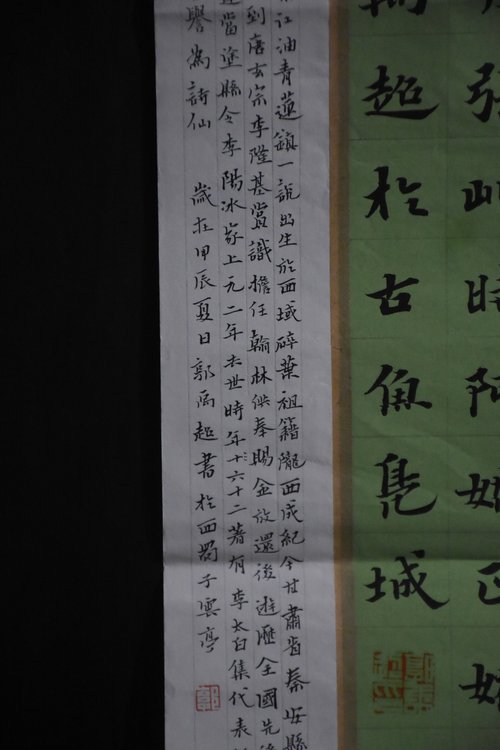 時
超於古魚鳧城
江油青蓮鎮一說出生於西域碎葉祖籍隴西成紀今甘肅省秦安縣
到唐玄宗李隆基賞識擔任翰林供奉賜金放還後遊歷全國先後
當塗縣令李陽冰家上元二年去世時年十六十二著有李太白集代表
譽為詩仙 歲在甲辰夏日郭禹超書於西蜀子雲亭